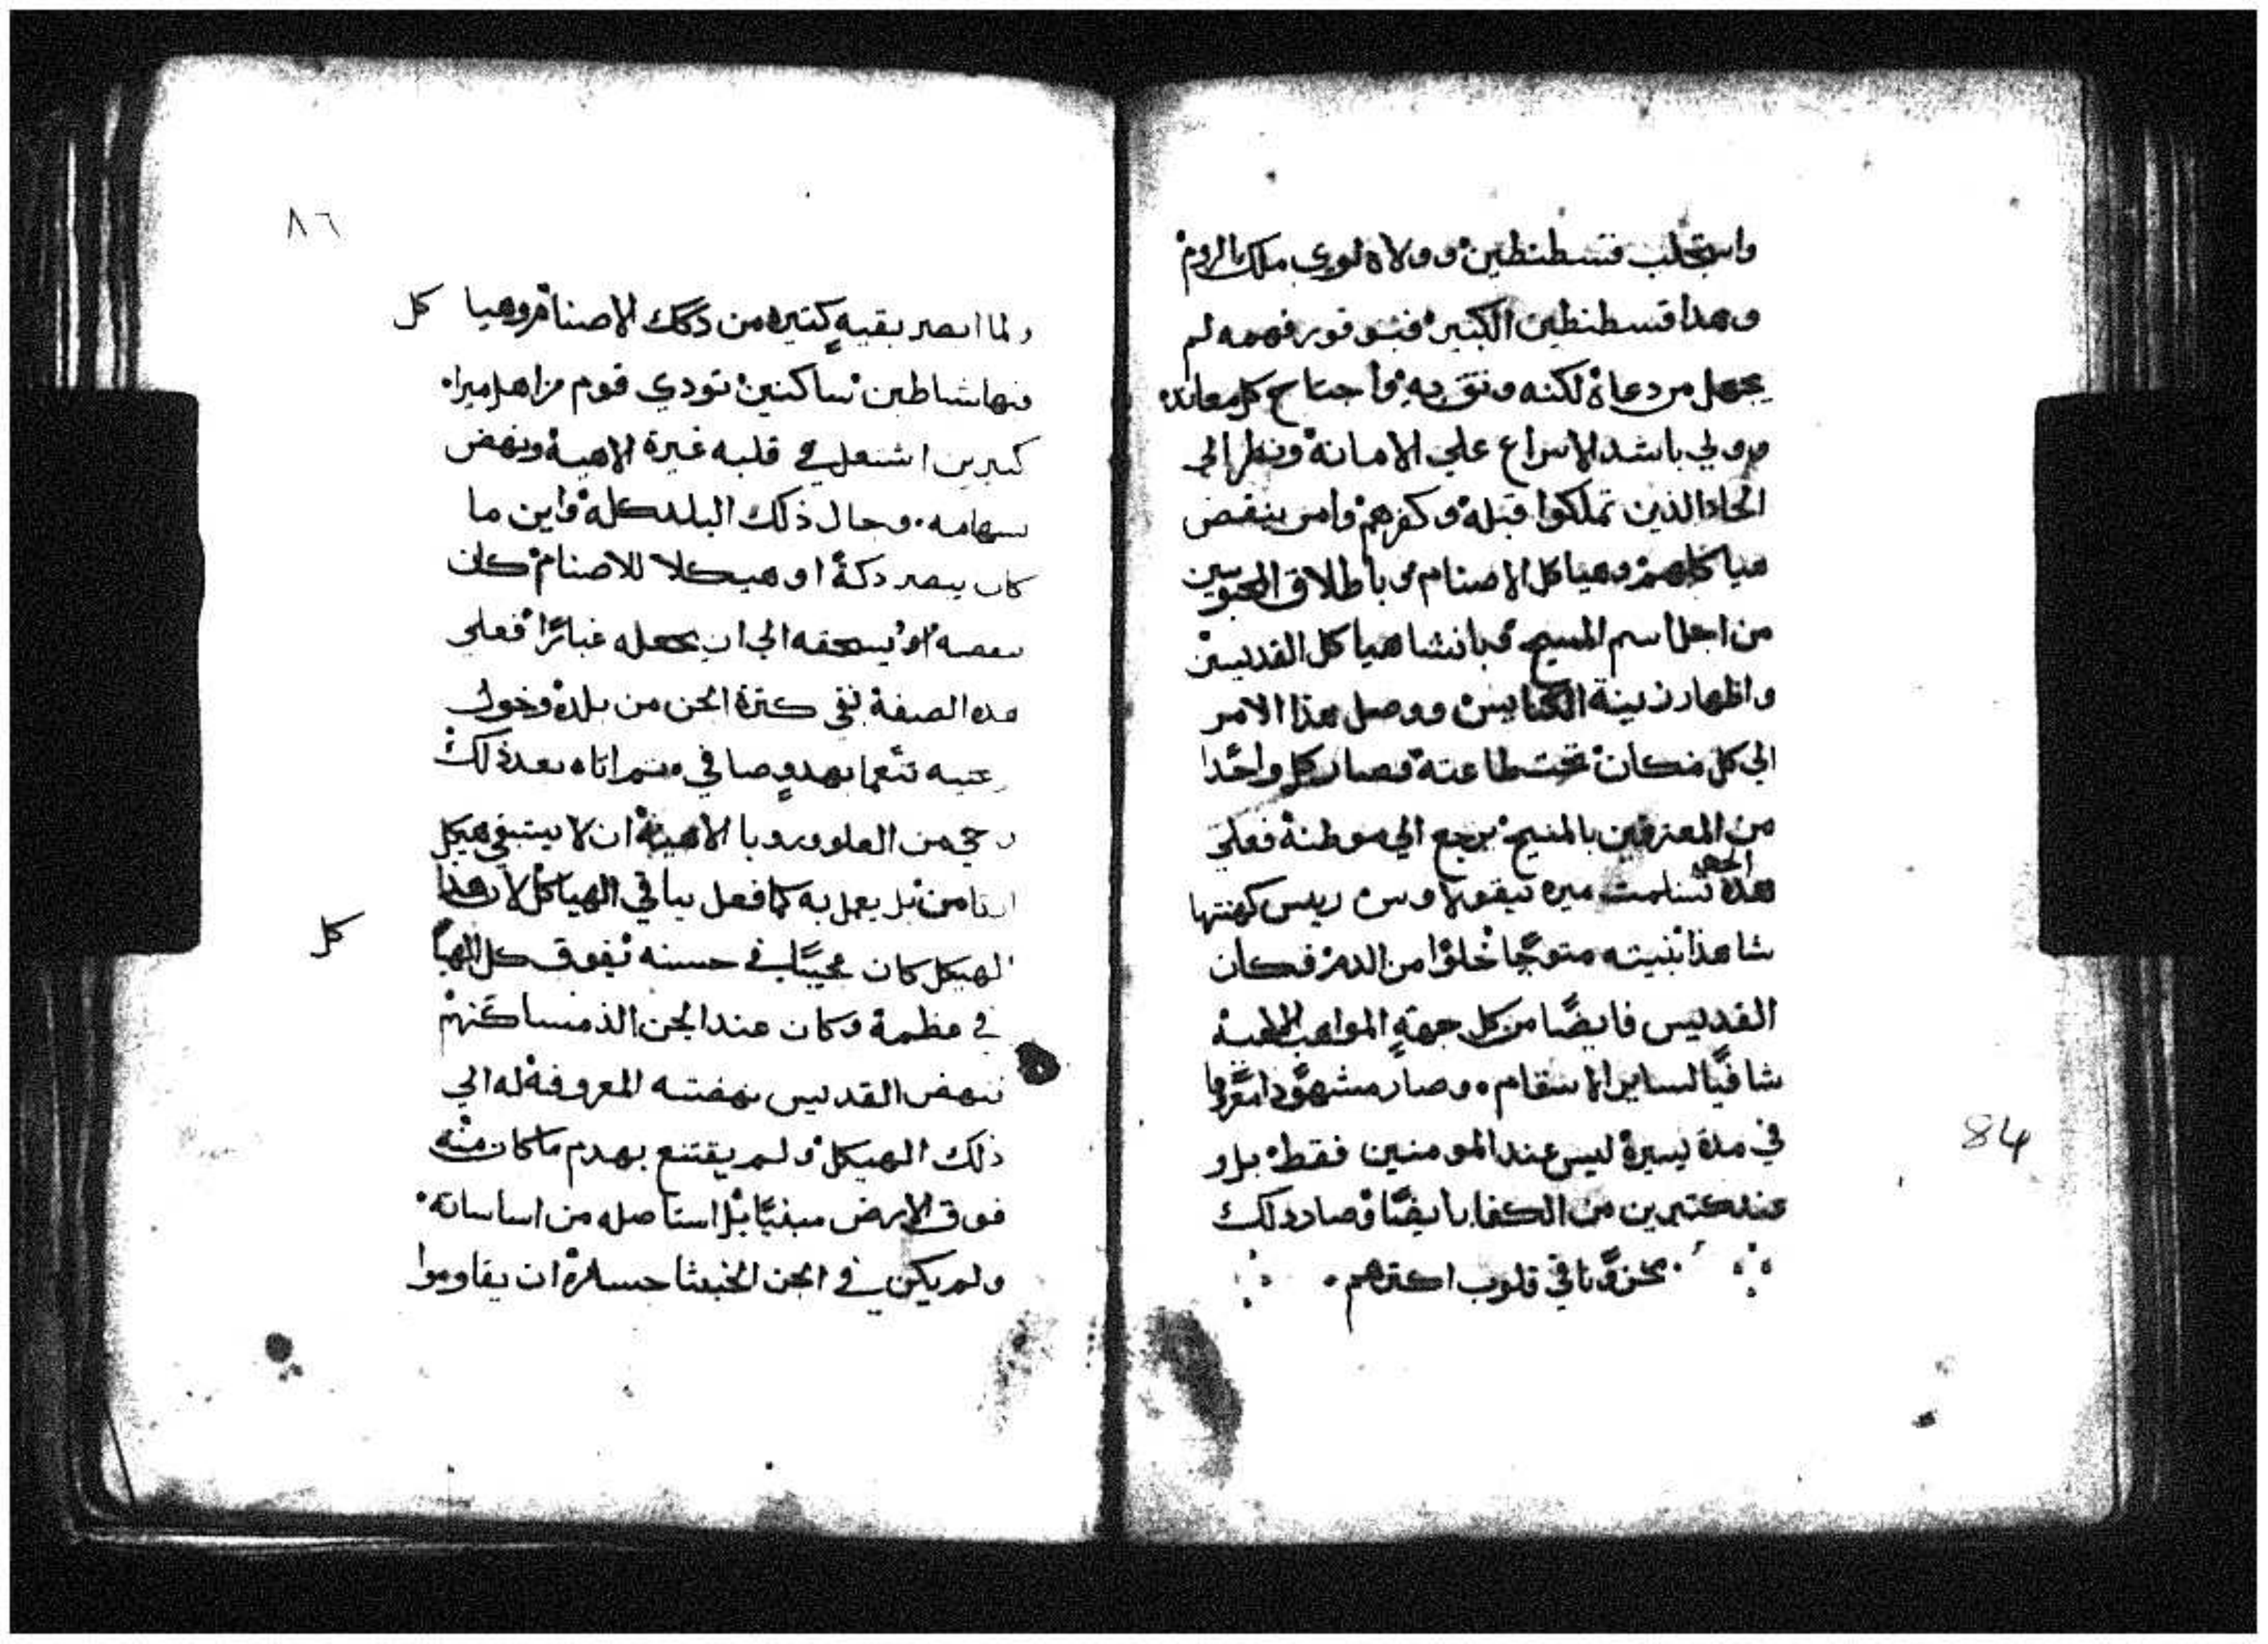 واستجلب قسطنطين وولاه لوري ملك الروم
وهذا قسطنطين الكبير فبتوقور فهمه لم
يجهل من دعاه لكنه وثق به واجتاح كل معانده
وولي باشد الاسراع علي الامانة ونظر الي
الحاد الذين تملكوا قبله وكفرهم وامر بنقض
هياكلهم وهياكل الاصنام وباطلاق المحبوسين
من اجل اسم المسيح وبانشا هياكل القديسين
واظهار زينة الكنايس ووصل هذا الامر
الي كل مكان تحت طاعته فصار كل واحدا
من المعترفين بالمسيح يرجع الي موطنه فعلي
الجهه
هذه تسلمت ميره نيقولاوس ريس كهنتها
شاهدا بنيته متوجا خلوا من الدم فكان
القديس فايضا من كل جهة المواهب الالهية
شافيا لساير الاسقام وصار مشهودا معروفا
في مدة يسيرة ليس عند المومنين فقط بل و
عند كتيرين من الكفار ايضا وصار ذلك
مخزونا في قلوب اكترهم
84
٨٦
ولما ابصر بقية كتيره من ذلك الاصنام وهيا كل
فيها شياطين ساكنين تودي قوم من اهل ميراه
كتيرين اشتعل في قلبه غيرة الاهية ونهض
بسهامه وجال ذلك البلد كله واين ما
كان يبصر دكة او هيكلا للاصنام كان
ينقصه او يسحقه الي ان يجعله غبارا فعلي
هذه الصفة نفي كترة الجن من بلده وخول
رعيته تنعما بهدو صافي ثم اتاه بعد ذلك
وحي من العلو وروبا الاهية ان لا يستبقي هيكل
ارتامن بل يعمل به كما فعل بباقي الهياكل لان هذا
الهيكل كان عجيبا في حسنه يفوق كل الهيا كل
في عظمة وكان عند الجن الذ مساكنهم
فنهض القديس بنهضته المعروفة له الي
ذلك الهيكل ولم يقتنع بهدم ما كان منه
فوق الارض مبنيا بل استاصله من اساساته
ولم يكن في الجن الخبيثا جساره ان يقاوموا